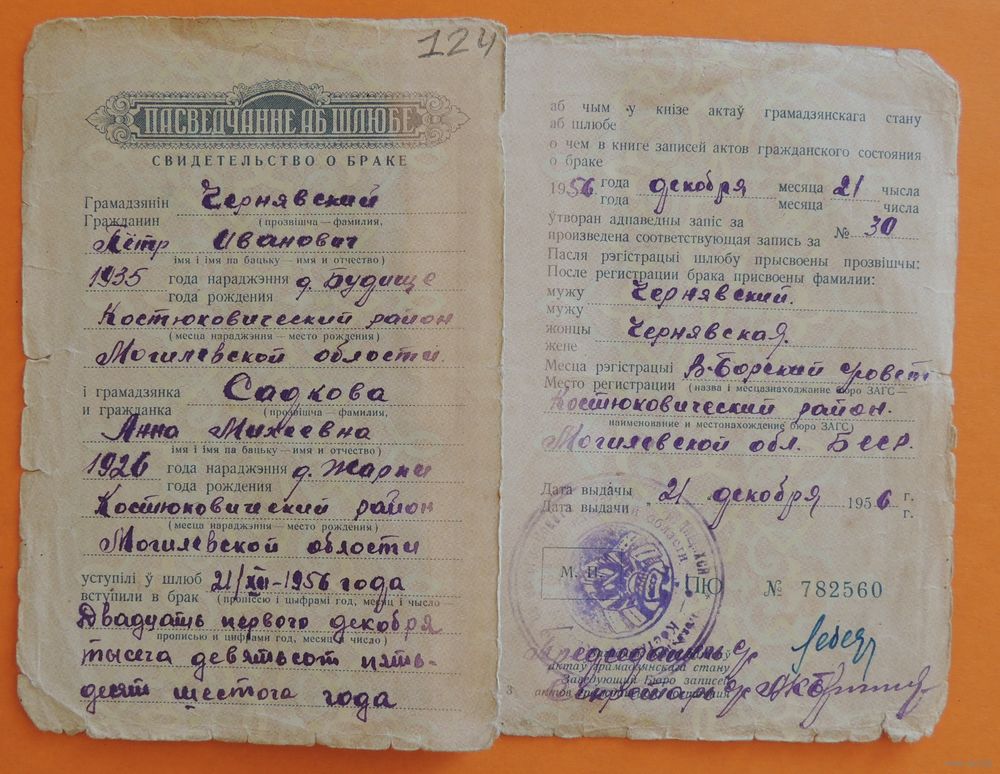 124
ПАСВЕДЧАННЕ АБ ШЛЮБЕ
СВИДЕТЕЛЬСТВО О БРАКЕ
Грамадзянін Чернявский
Гражданин
(прозвішча — фамилия,
Пётр Иванович
імя і імя па бацьку — имя и отчество)
1935 года нараджэння д. Будище
года рождения
Костюковический район
(месца нараджэння — место рождения)
Могилевской области
і грамадзянка Садкова
и гражданка
(прозвішча — фамилия,
Анна Михеевна
імя і імя па бацьку — имя и отчество)
1926 года нараджэння д. Жарки
года рождения
Костюковический район
(месца нараджэння — место рождения)
Могилевской области
уступілі ў шлюб 21/XII-1956 года
вступили в брак
(прописсю і цыфрамі год, месяц і чысло —
Двадцать первого декабря
прописью и цифрами год, месяц и число)
тысеча девятьсот пять-
десят шестога года
аб чым у кнізе актаў грамадзянскага стану
аб шлюбе
о чем в книге записей актов гражданского состояния
о браке
1956 года декабря месяца 21 числа
года месяца числа
ўтворан адпаведны запіс за № 30
произведена соответствующая запись за
Пасля рэгістрацыі шлюбу прысвоены прозвішчы:
После регистрации брака присвоены фамилии:
мужу Чернявский.
мужу
жонцы Чернявская.
жене
Месца рэгістрацыі В-Борский совет
Место регистрации
(назва і месцазнаходжанне бюро ЗАГС —
Костюковический район.
наименование и местонахождение бюро ЗАГС)
Могилевской обл. БССР.
Дата выдачы 21 декабря 1956 г.
Дата выдачи г.
М. П.
ПЮ № 782560
Председатель с/с
актаў грамадзянскага стану
Заведующий Бюро записей
актов гражданского состояния
3